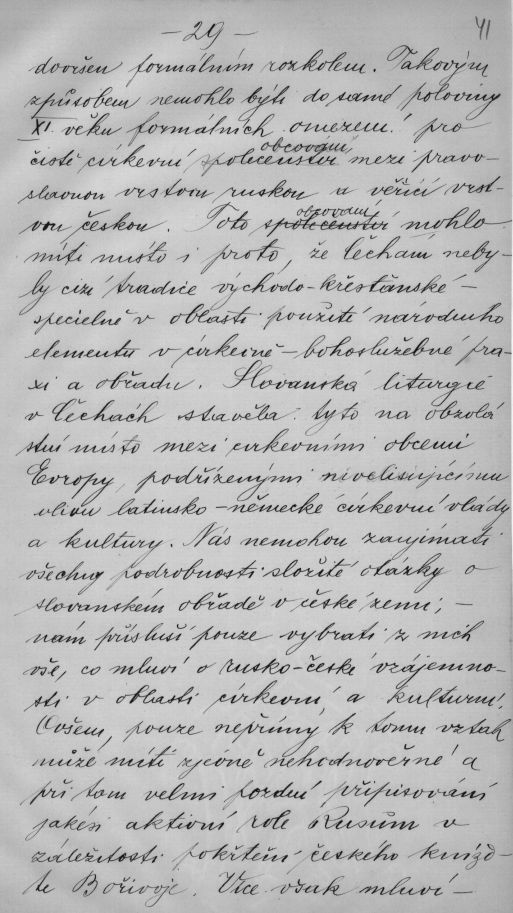 — 29 —
41
dovršen formálním rozkolem. Takovým
způsobem nemohlo býti do samé poloviny
XI. věku formálních omezení pro
čistě církevní společenství obcování mezi pravo-
slavnou vrstvou ruskou a věřící vrst-
vou českou. Toto společenství obcování mohlo
míti místo i proto, že Čechám neby-
ly cizí tradice východo-křesťanské –
specielně v oblasti použití národního
elementu v církevně – bohoslužebné pra-
xi a obřadu. Slovanská liturgie
v Čechách stavěla tyto na obzvlá
stní místo mezi církevními obcemi
Evropy, podřízenými nivelisujícímu
vlivu latinsko – německé církevní vlády
a kultury. Nás nemohou zaujímati
všechny podrobnosti složité otázky o
slovanském obřadě v české zemi; –
nám přísluší pouze vybrati z nich
vše, co mluví o rusko-české vzájemno-
sti v oblasti církevní a kulturní.
Ovšem, pouze nepřímý k tomu vztah
může míti zjevně nehodnověrné a
při tom velmi pozdní připisování
jakési aktivní role Rusům v
záležitosti pokřtění českého kníže-
te Bořivoje. Více však mluví –